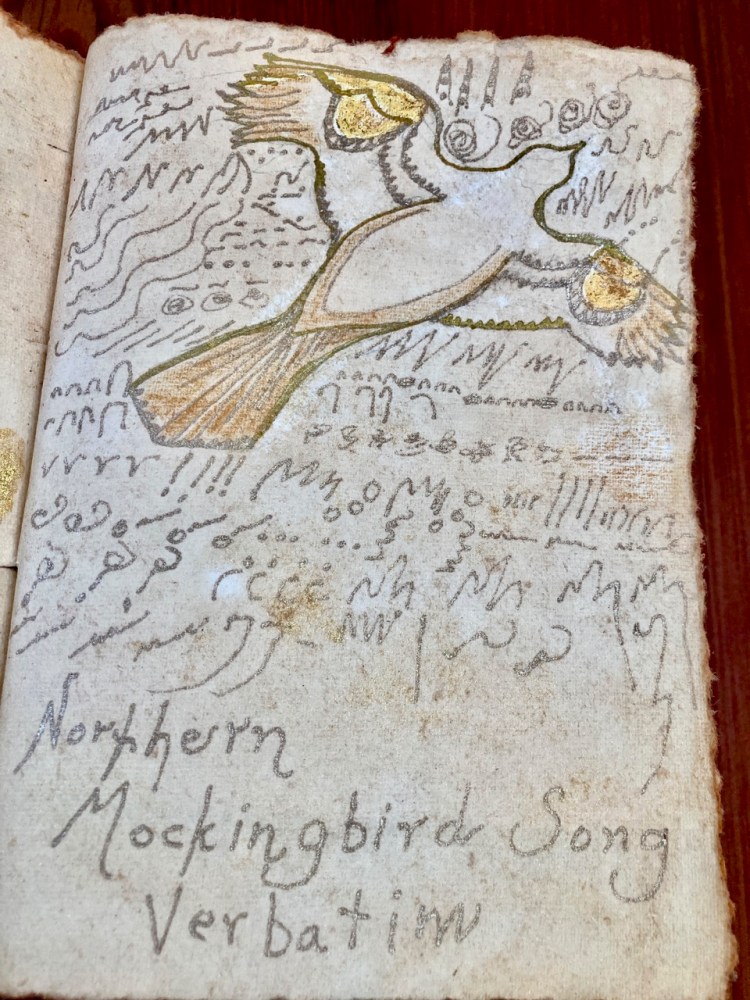 Northern
Mockingbird Song
Verbatim